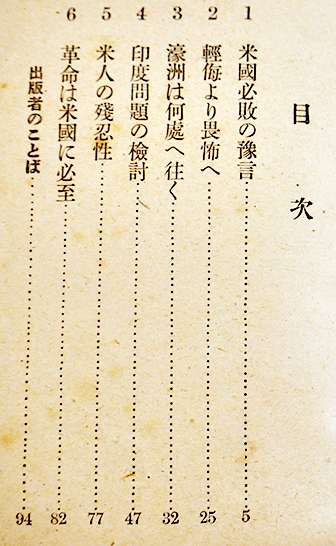 目次
1 米國必敗の豫言 5
2 輕侮より畏怖へ 25
3 濠洲は何處へ往く 32
4 印度問題の檢討 47
5 米人の殘忍性 77
6 革命は米國に必至 82
出版者のことば 94